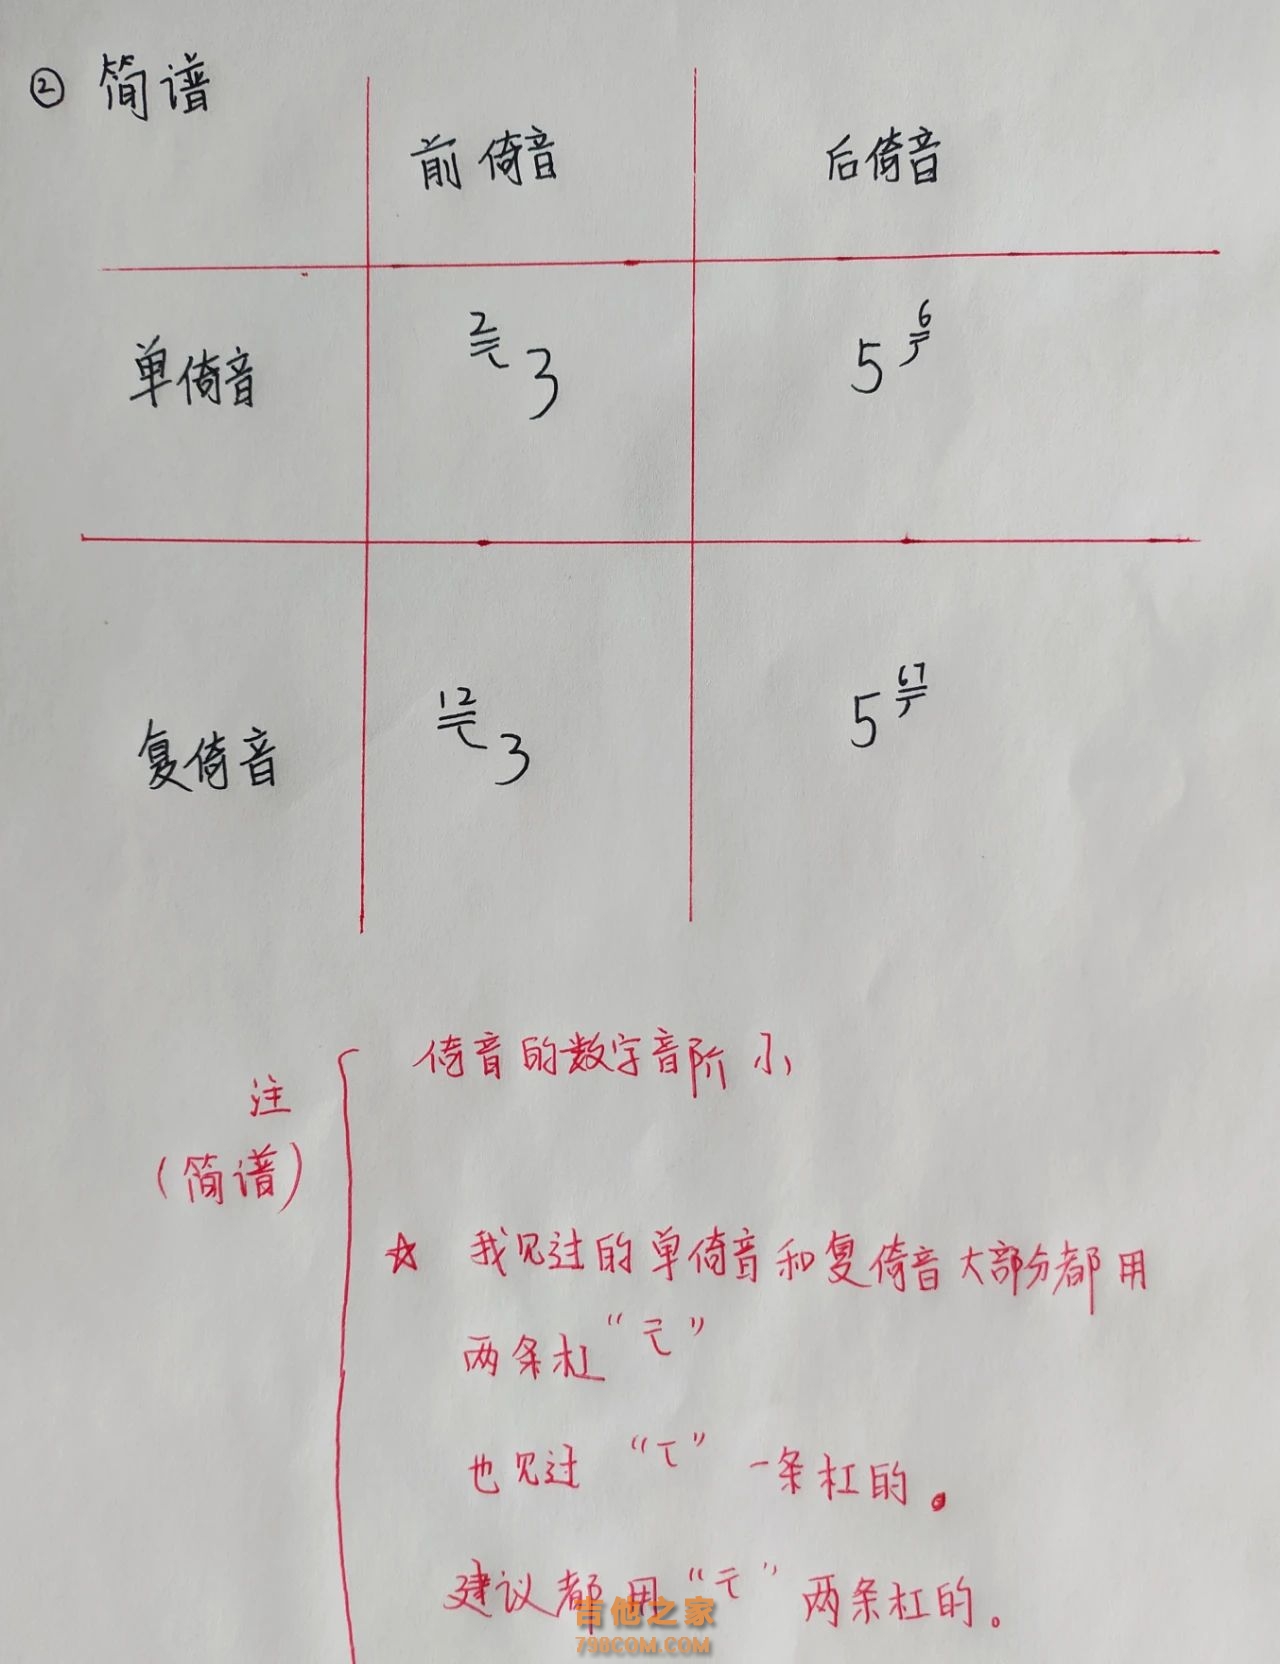 ② 简谱
前倚音 后倚音
单倚音 2 3 5 6
复倚音 12 3 5 67
注
(简谱)
倚音的数字音阶小
☆ 我见过的单倚音和复倚音大部分都用
两条杠“ ”
也见过“ ” 一条杠的。
建议都用“ ”两条杠的。
吉他之家
798COM.COM